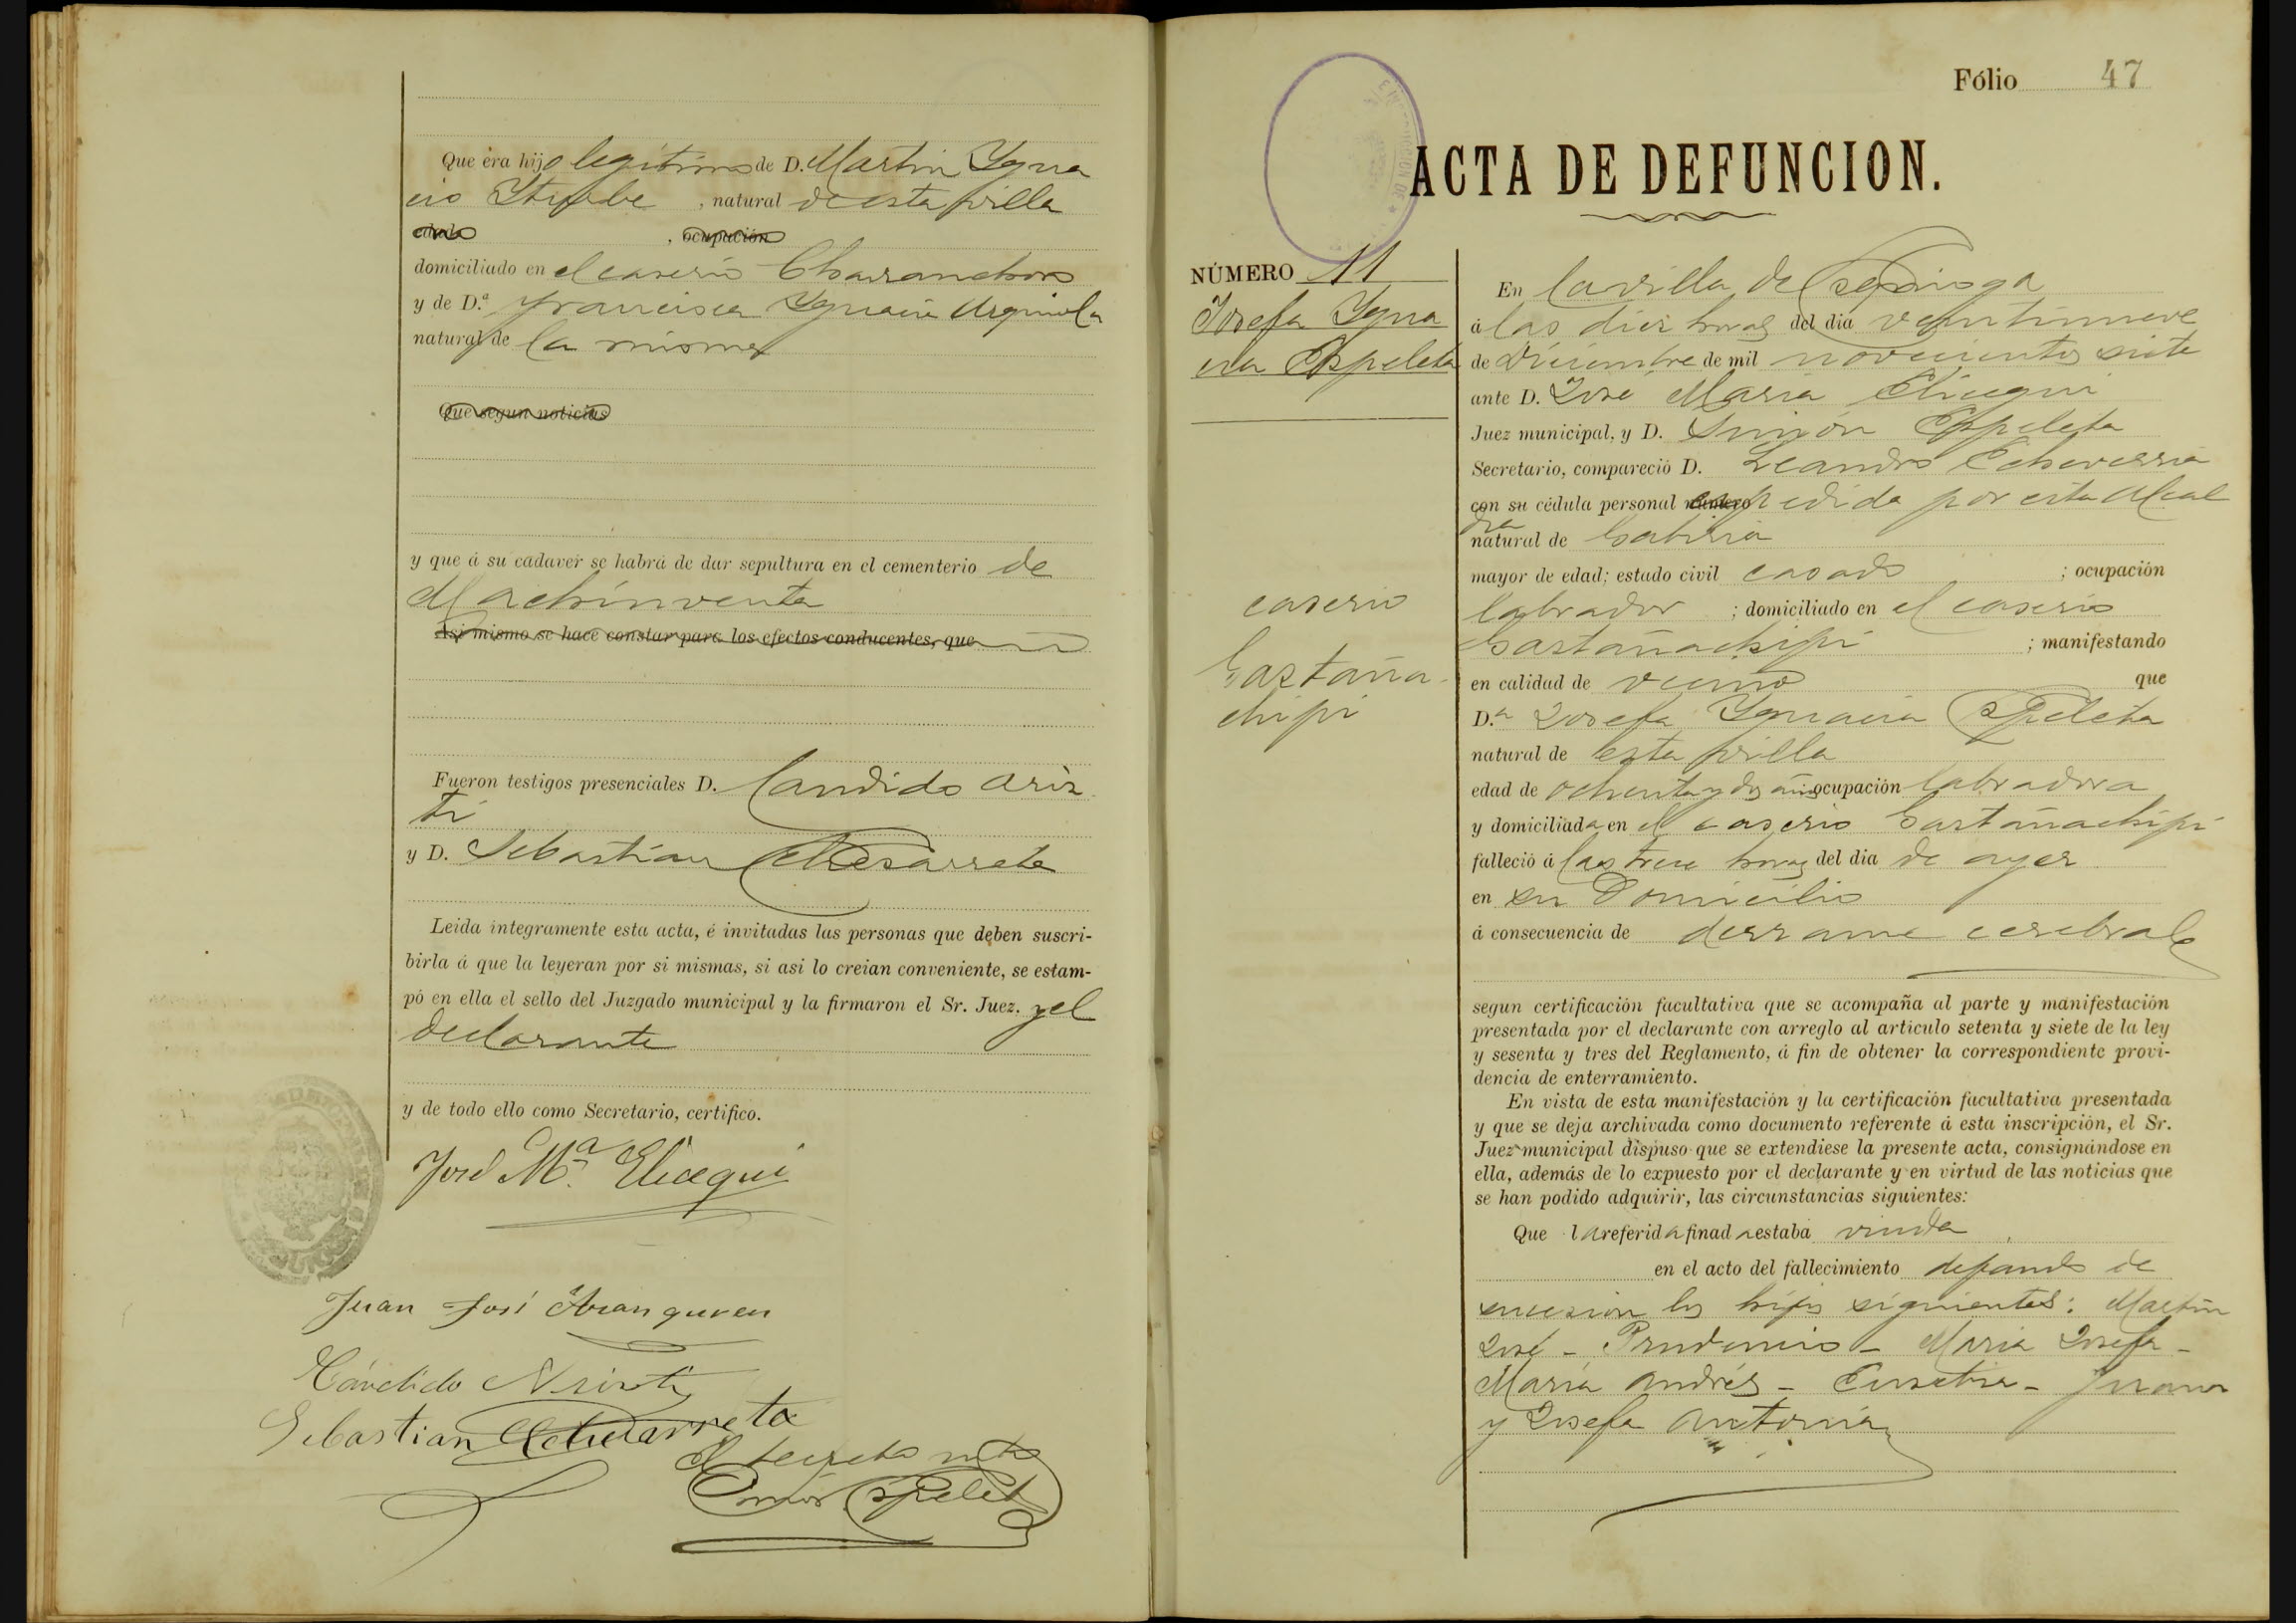 Que era hijo legítimo de D. Martin Ygna
cio Iturbe , natural de esta villa
edad , ocupación
domiciliado en el caserio Charanchoro
y de D.ª Francisca Ygnacia Urquiola
natural de la misma
Que segun noticias
y que á su cadáver se habrá de dar sepultura en el cementerio de
Machinventa
Asi mismo se hace constar para los efectos conducentes, que
Fueron testigos presenciales D. Candido Aris
ti
y D. Sebastian Echezarreta
Leida íntegramente esta acta, é invitadas las personas que deben suscri-
birla á que la leyeran por si mismas, si asi lo creian conveniente, se estam-
pó en ella el sello del Juzgado municipal y la firmaron el Sr. Juez. y el
declarante
y de todo ello como Secretario, certifico.
José M.ª Elicegui
Juan José Aranguren
Cándido Aristi
Sebastian Echezarreta
El secretario
Simón Ezpeleta
Fólio 47
ACTA DE DEFUNCION.
NÚMERO 11
Josefa Ygna
cia Ezpeleta
caserio
Gaztaña-
chipi
En la villa de
á las diez horas del dia veintinueve
de Diciembre de mil novecientos siete
ante D. José Maria Elicegui
Juez municipal, y D. Simón Ezpeleta
Secretario, compareció D. Leandro Echeverria
con su cédula personal número expedida por esta Alcal
dia
natural de Gabiria
mayor de edad; estado civil casado ; ocupación
labrador ; domiciliado en el caserio
Gastañachipi ; manifestando
en calidad de vecino que
D.ª Josefa Ygnacia Ezpeleta
natural de esta villa
edad de ochenta y dos años ocupación labradora
y domiciliada en el caserio Gastañachipi
falleció á las trece horas del dia de ayer
en su domicilio
á consecuencia de derrame cerebral
segun certificación facultativa que se acompaña al parte y manifestación
presentada por el declarante con arreglo al articulo setenta y siete de la ley
y sesenta y tres del Reglamento, á fin de obtener la correspondiente provi-
dencia de enterramiento.
En vista de esta manifestación y la certificación facultativa presentada
y que se deja archivada como documento referente á esta inscripción, el Sr.
Juez municipal dispuso que se extendiese la presente acta, consignándose en
ella, además de lo expuesto por el declarante y en virtud de las noticias que
se han podido adquirir, las circunstancias siguientes:
Que la referida finada estaba viuda
en el acto del fallecimiento dejando de
sucesion los hijos siguientes: Martin
José - Prudencio - Maria Josefa -
Maria Andrés - Eusebia - Juana
y Josefa Antonia